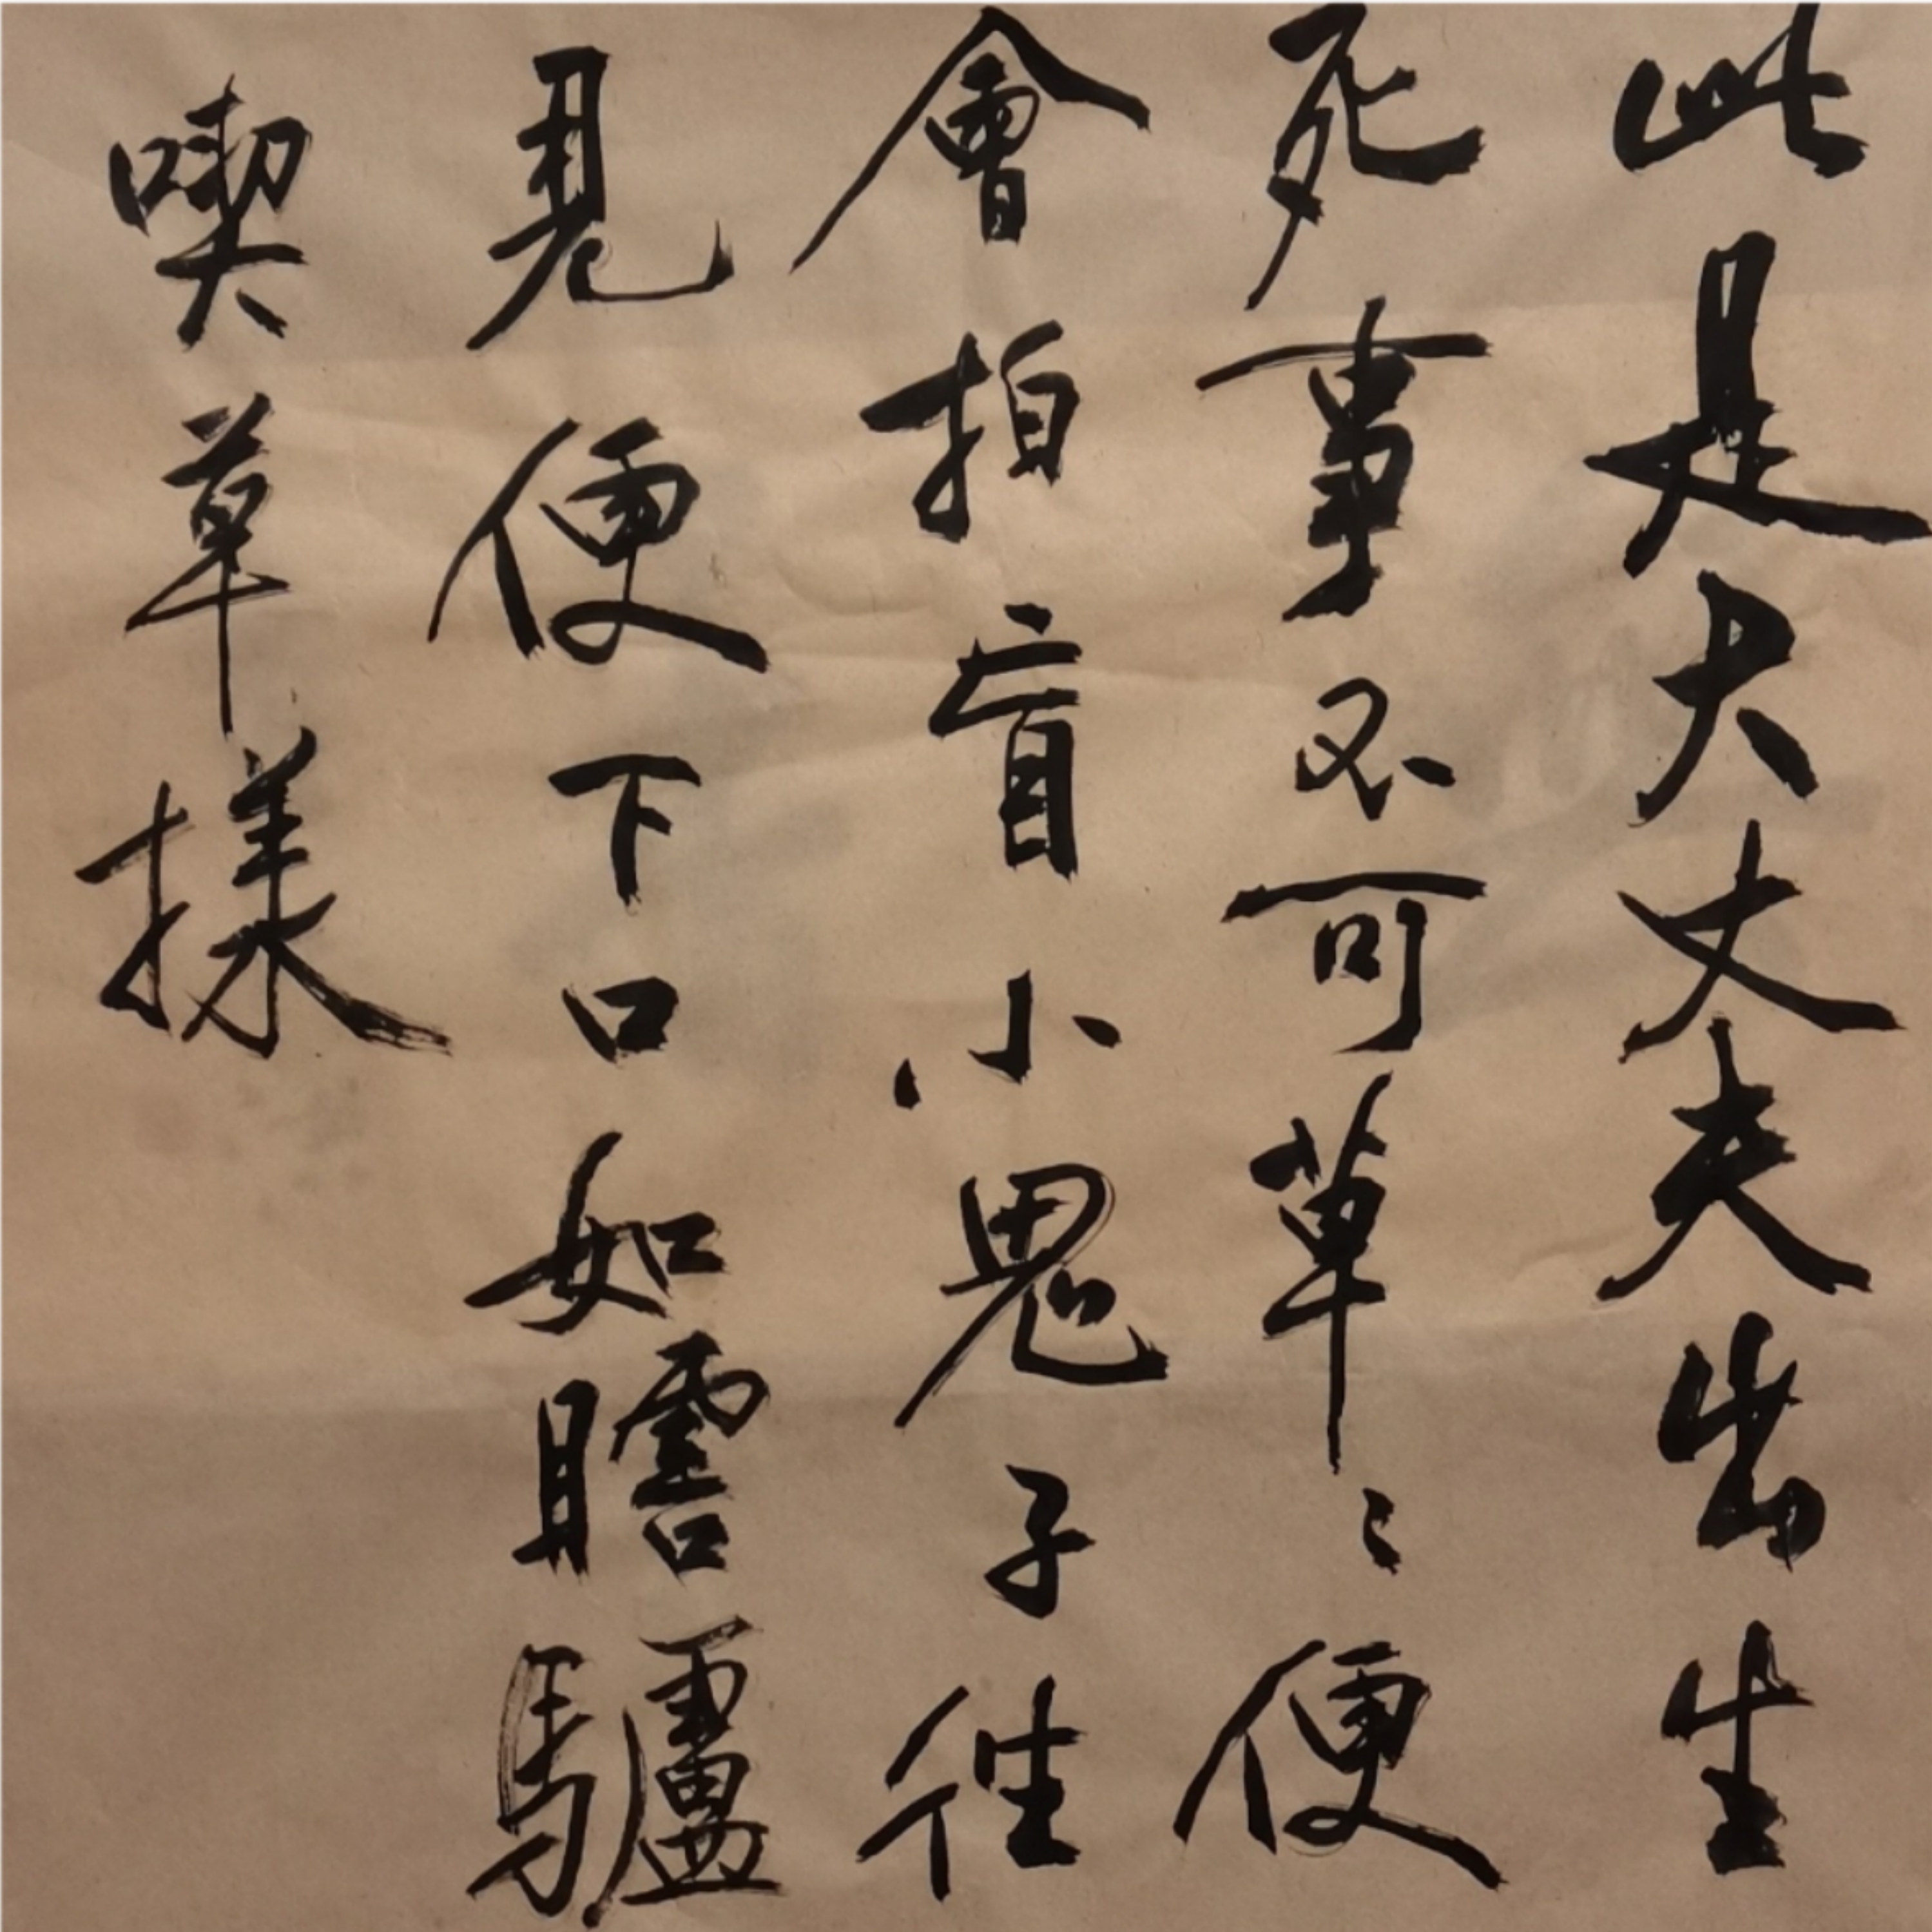 此是大丈夫出生
死事不可草〻便
會拍盲小鬼子往
見便下口如瞎驢
喫草樣